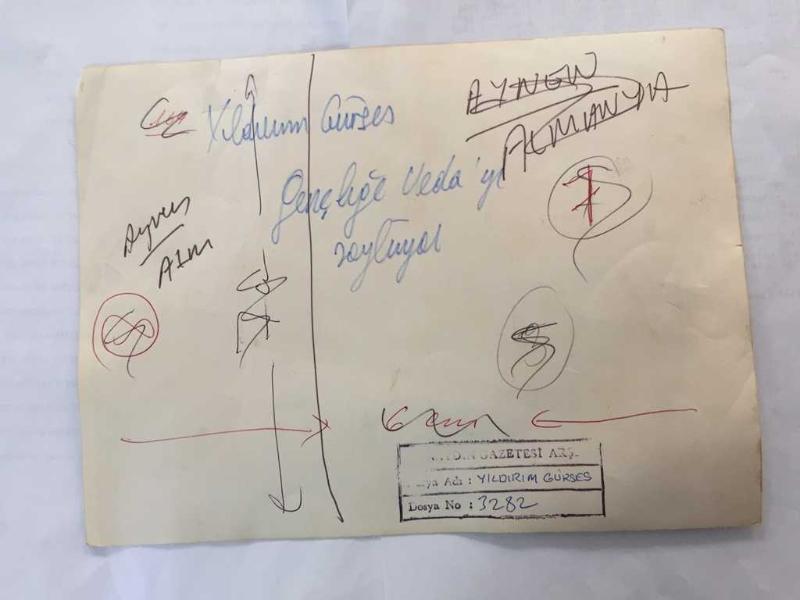 Yıldırım Gürses
Gençliğe Veda'yı
söylüyor
AYNEN
ALMANYA
Aynen
ALM
6 cm
GAZETESİ ARŞ.
Adı : YILDIRIM GÜRSES
Dosya No : 3282